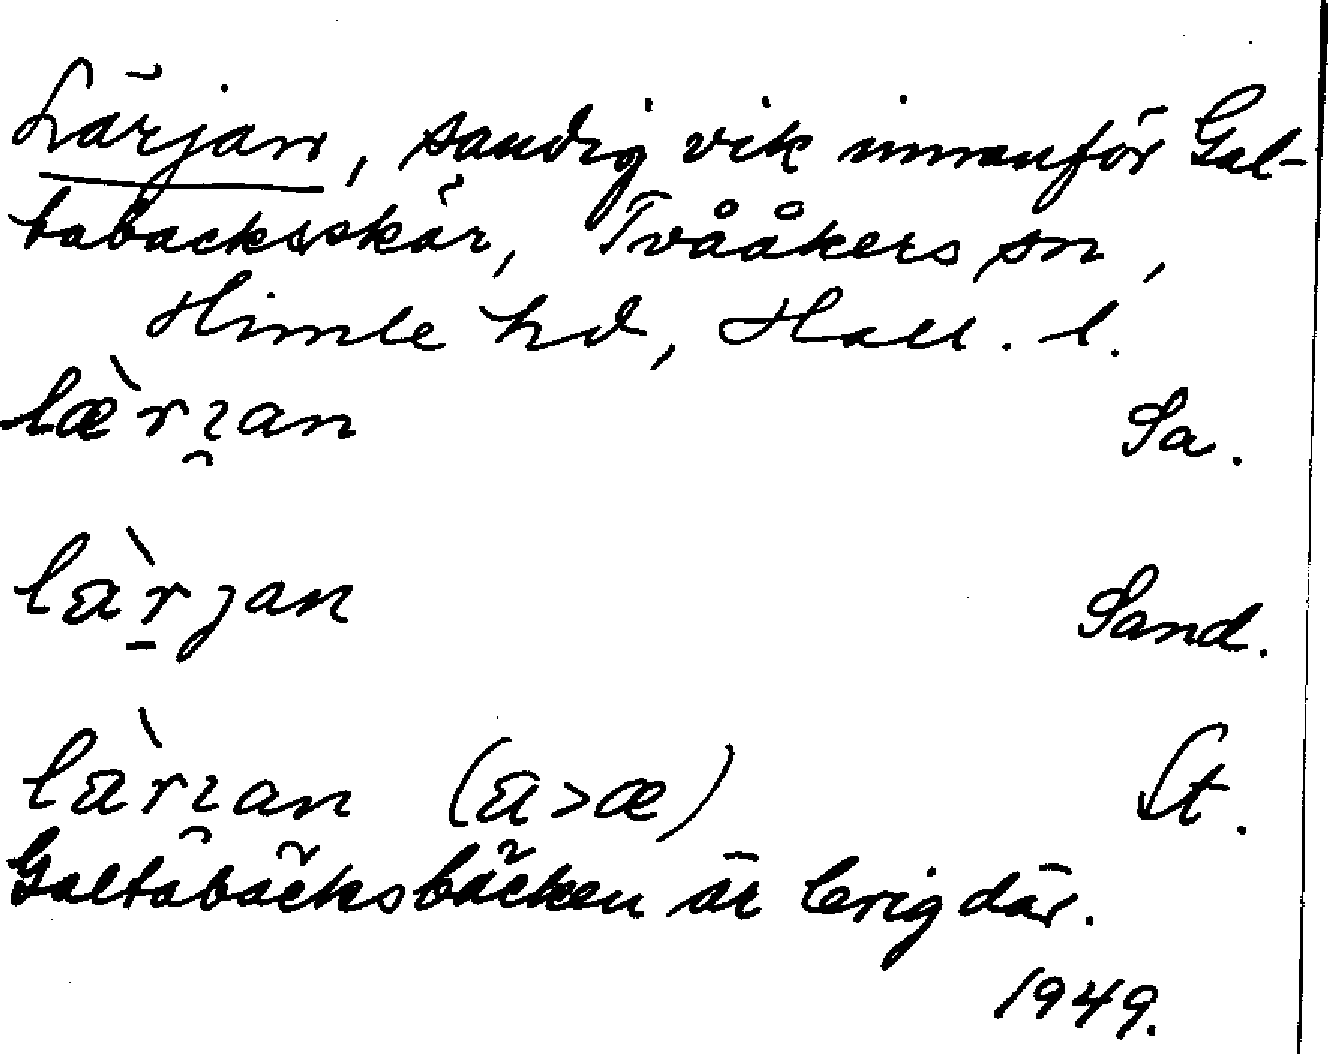 Lärjan, sandig vik innanför Gal-
tabacksskär, Tvååkers sn,
Himle hd, Hall. l.
læ̀rı̯an Sa.
là̱rjan Sand.
làrı̯an (a>æ) St.
Galtabäcksbäcken är lerig där.
1949.